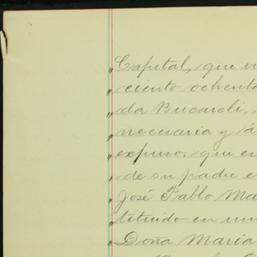 „Capital, que vi
„ciento ochenta
„da Bucareli,
„necesaria y á
„expuso: que en
„de su padre e
„José Pablo Ma
„tituido en un
„Doña Maria